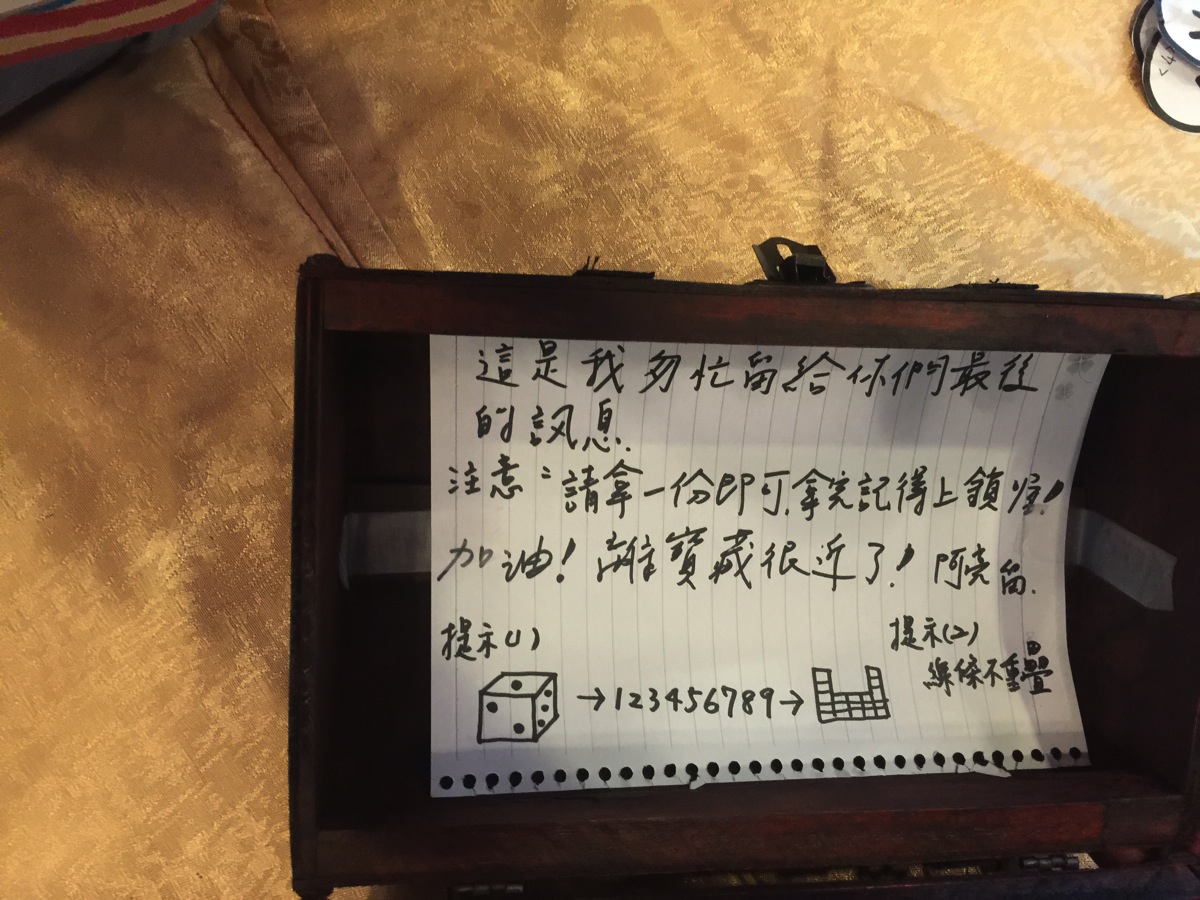 這是我匆忙留給你們最後
的訊息.
注意：請拿一份即可,拿完記得上鎖喔!
加油! 離寶藏很近了! 阿克留.
提示(1)
→123456789→
提示(2)
線條不重疊